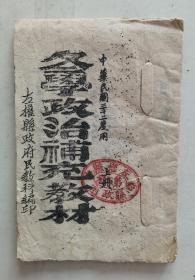 中華民國三十二度用
冬學政治補充教材
左權縣政府民教科編印